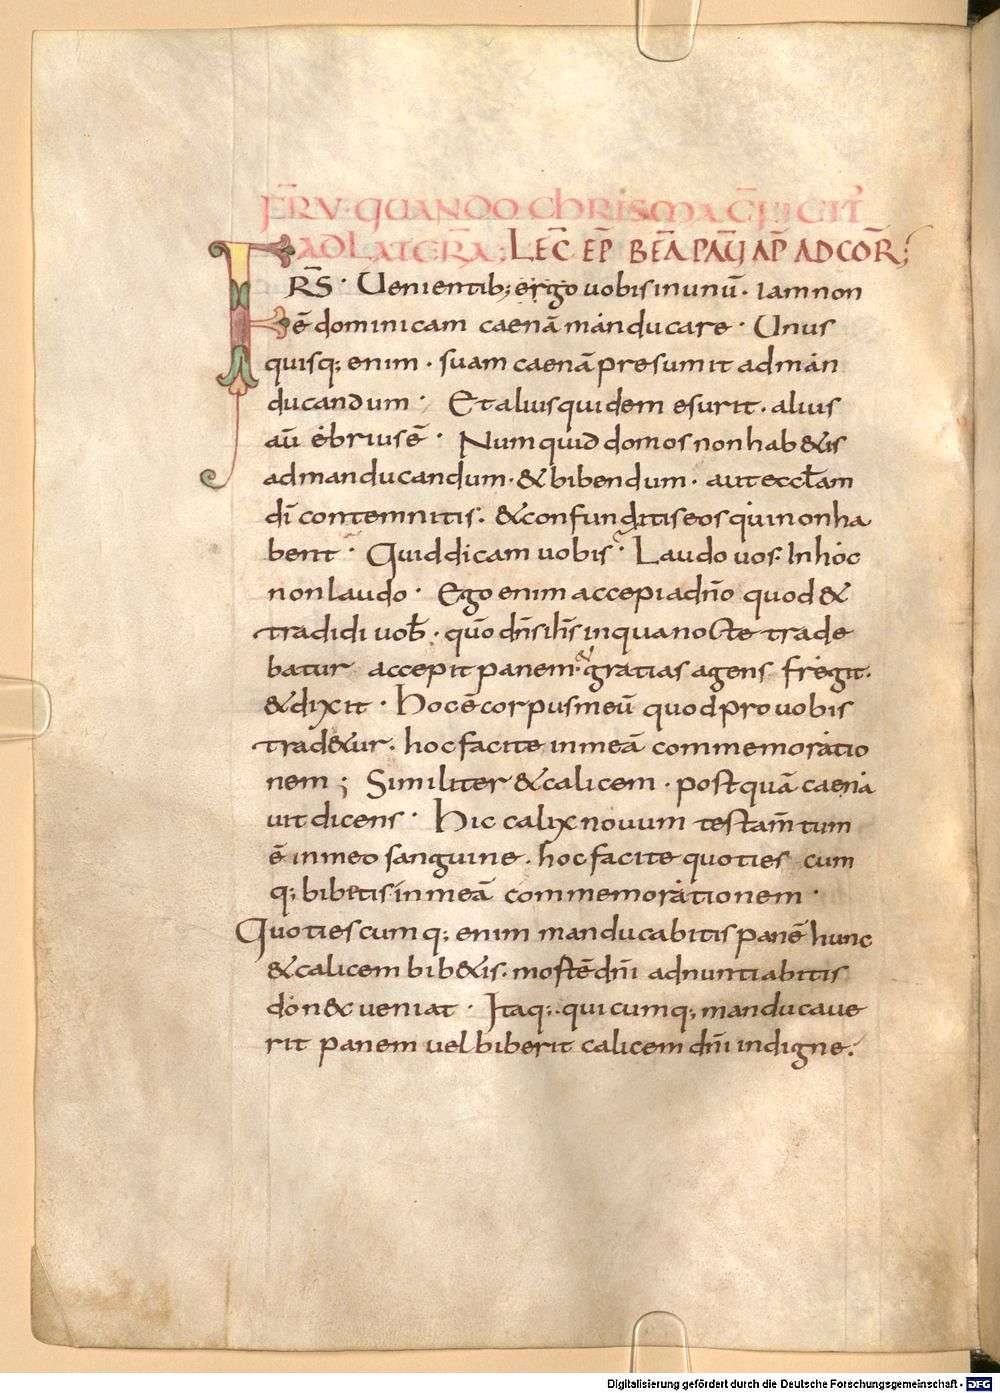 FR̄ V · QUANDO CHRISMA C̄FICIT᷒
AD LATER̄A ; LEC̄ EP̄ BEĀ PAULI AP̄ AD COR̄;
FRS̄ · Uenientib; ergo uobis in unū · iam non
ē dominicam caenā manducare · Unus
quisq; enim · suam caenā presumit ad man
ducandum · Et alius quidem esurit · alius
aū ebrius ē · Numquid domos non hab&is
ad manducandum · & bibendum · aut eccl̄am
dī contemnitis · & confunditis eos qui non ha
bent · Quid dicam uobis · Laudo uos · In hoc
non laudo · Ego enim accepi a dn̄o quod &
tradidi uob̄ · quō dn̄s ih̄s in qua nocte trade
batur accepit panem · & gratias agens fregit ·
& dixit · Hoc ē corpus meū quod pro uobis
trad&ur · hoc facite in meā commemoratio
nem ; Similiter & calicem · postquā caena
uit dicens · Hic calix nouum testam̄tum
ē in meo sanguine · hoc facite quoties cum
q; bibetis in meā commemorationem ·
Quotiescumq; enim manducabitis panē hunc
& calicem bib&is · mortē dn̄i adnuntiabitis
don&c ueniat · Itaq; · quicumq; manducaue
rit panem uel biberit calicem dn̄i indigne ·
Digitalisierung gefördert durch die Deutsche Forschungsgemeinschaft - DFG